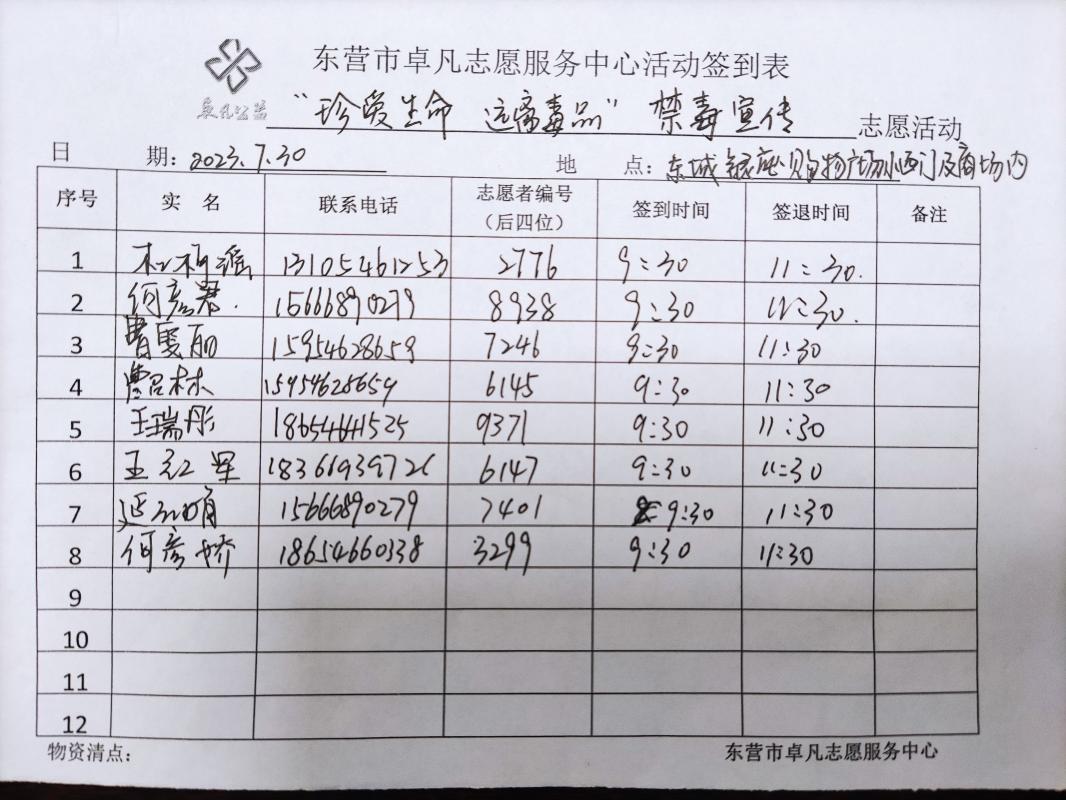 东营市卓凡志愿服务中心活动签到表
卓凡公益
"珍爱生命 远离毒品" 禁毒宣传 志愿活动
日 期：2023.7.30 地 点：东城 购物广场 西门及商场内
序号 实 名 联系电话 志愿者编号（后四位） 签到时间 签退时间 备注
1 13105461253 2776 9:30 11:30.
2 何彦君. 15666890279 8938 9:30 11:30.
3 曹曼丽 15954628659 7246 9:30 11:30
4 15954628659 6145 9:30 11:30
5 王瑞彤 18654641525 9371 9:30 11:30
6 王红军 18366939726 6147 9:30 11:30
7 15666890279 7401 9:30 11:30
8 何彦娇 18654660338 3299 9:30 11:30
9
10
11
12
物资清点： 东营市卓凡志愿服务中心